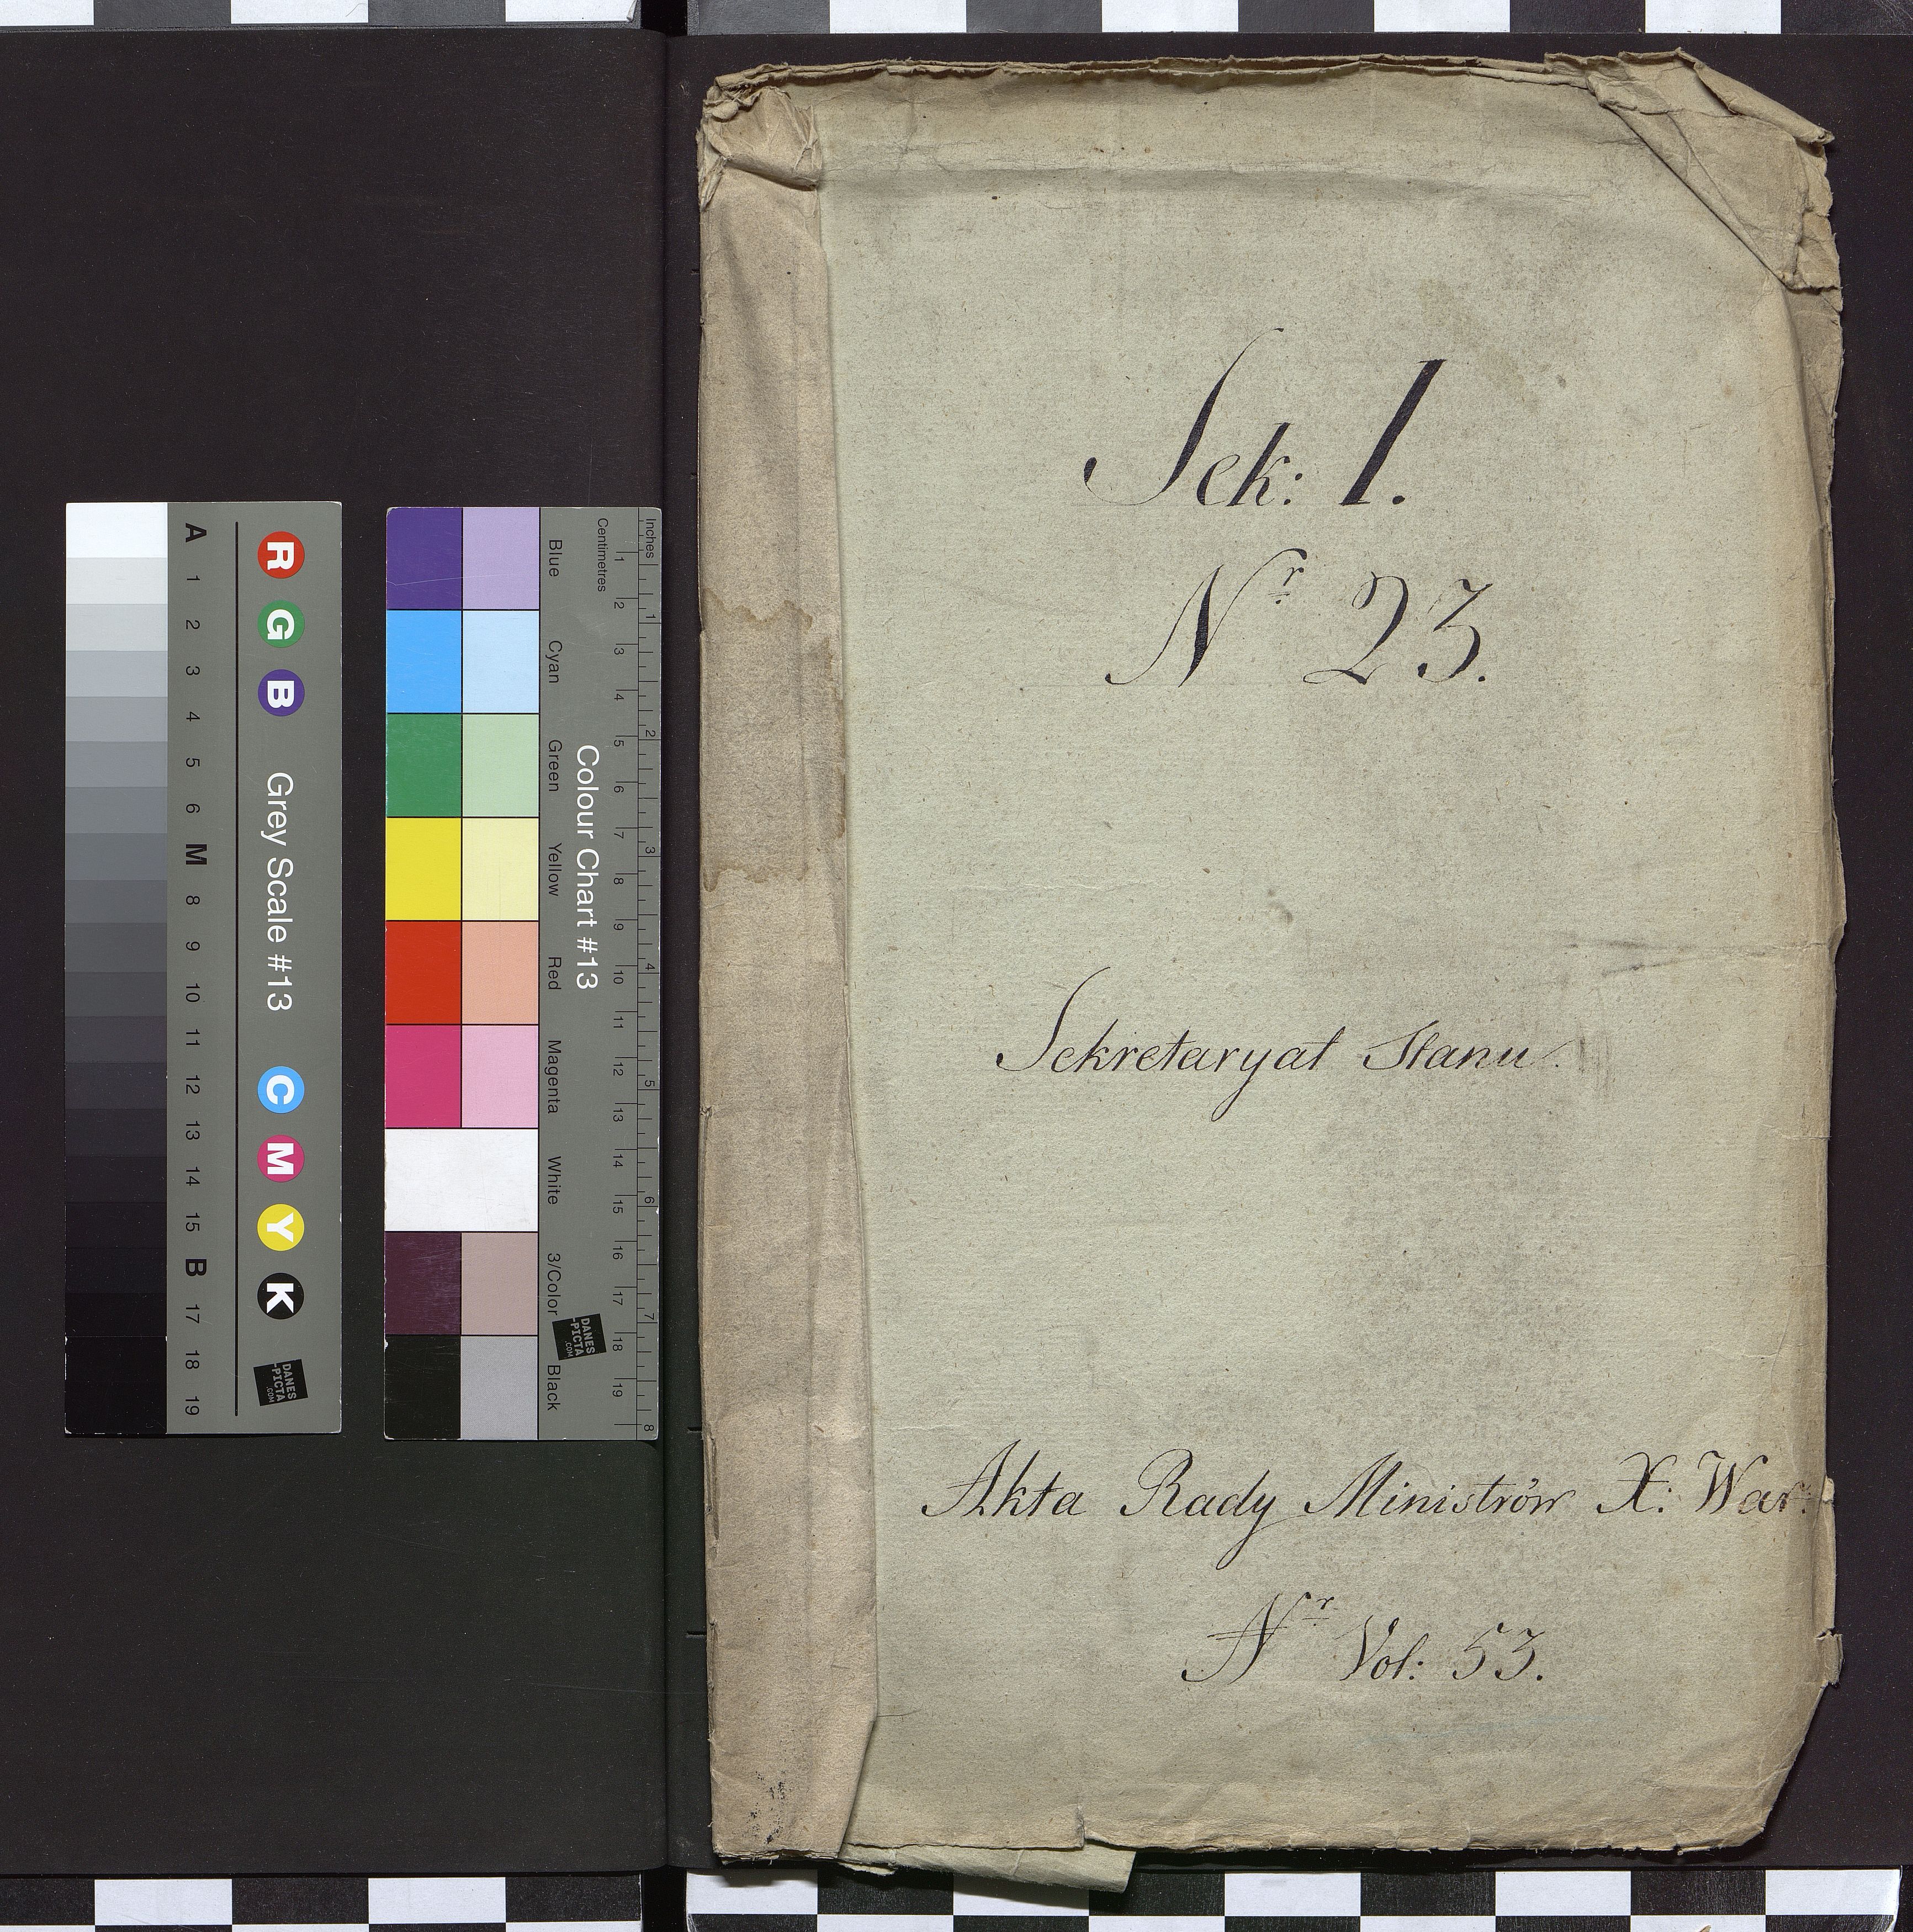 A 1 2 3 4 5 6 M 8 9 10 11 12 13 14 15 B 17 18 19
R G B Grey Scale #13 C M Y K
DANES
-PICTA
.COM
Blue Cyan Green Yellow Red Magenta White 3/Color Black
Colour Chart #13
DANES
-PICTA
.COM
Centimetres 1 2 3 4 5 6 7 8 9 10 11 12 13 14 15 16 17 18 19
Inches 1 2 3 4 5 6 7 8
Sek: 1.
Nr 23.
Sekretaryat Stanu.
Akta Rady Ministrów X: War:
Nr Vol: 53.